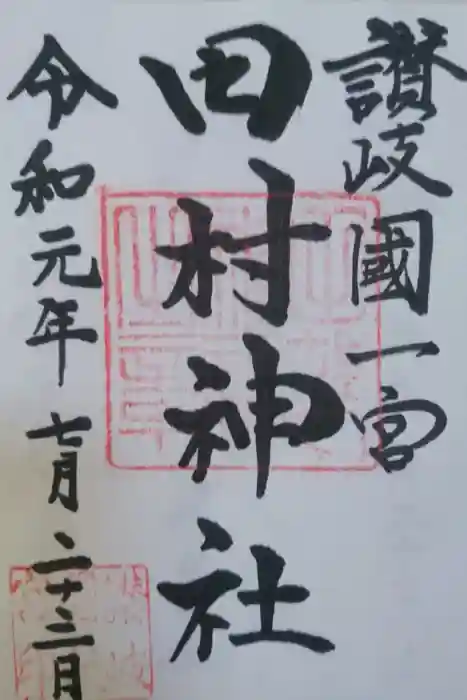 讃岐國一宮
田村神社
令和元年七月二十三日